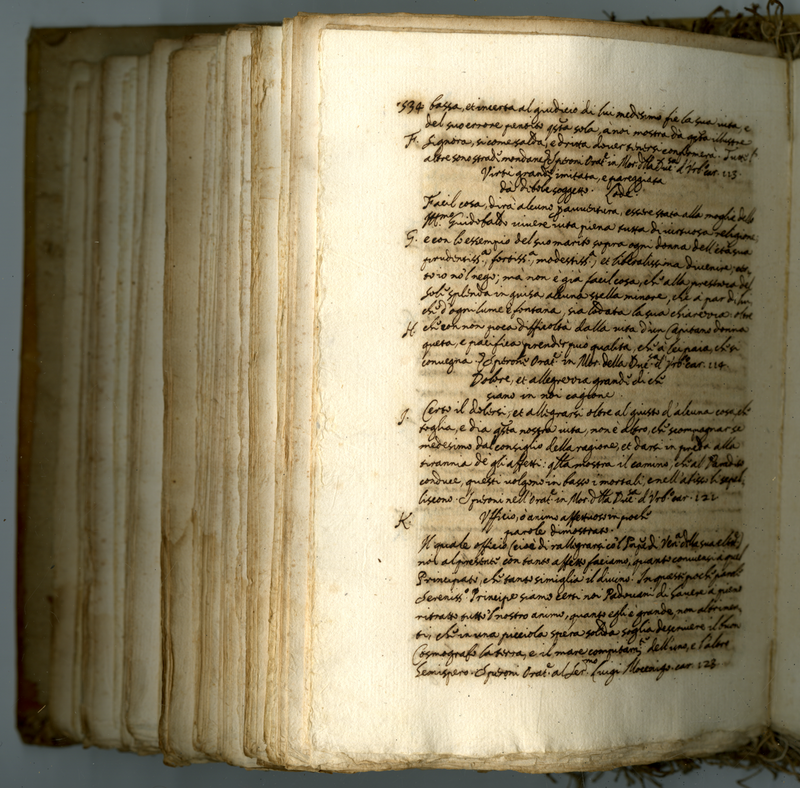 534 bassa, et incerta al giudicio di lui medesimo fie la sua vita, e
del suo errore pentito qsta sola, a noi mostra da qsta illustre
F. Signora, sicome salda, e dritta dover tenersi
altre sono strad. mondane. Speroni Orat. in Mor. dlla Duc. d' Urb. car. 113
Virtù grandi imitata, e pareggiata
da debole soggetto. Lode.
Facil cosa, dirà alcuno p avventura, essere stata alla moglie dello
Guidobaldo vivere vita piena tutta di virtuosa religione,
G. e con lo essempio del suo marito sopra ogni donna dell' età sua
prudentiss., fortiss., modestiss., et liberalissima divenire,
io no'l nego; mà non è già facil cosa, ch. alla presenza del
Sol. splenda in guisa alcuna stella minore, che a par di lui,
ch. d'ogni lume è fontana, sia lodata la sua chiarezza oltre
H. ch. con non poca difficoltà dalla vita d'un Capitano donna
queta, e pacifica prender può qualità, ch. à lei paia, ch. si
convegna. Speroni Orat. in Mor. della Duc. d' Urb. car. 114
Dolore, et allegrezza grandi di ch.
siano in noi cagione.
I. Certo il dolersi, et allegrarsi oltre al giusto d'alcuna cosa, ch.
toglia, e dia qsta nostra vita, non è altro, ch. scompagnar se
medesimo dal consiglio della ragione, et darsi in preda alla
tirannia de gli affetti: qlla mostra il camino, ch. al Paradiso
conduce, questi volgono in basso i mortali, e nell' abisso li sepel
liscono. Speroni nell' Orat. in Mor. dlla Duc. d' Urb. car. 121
K. Ufficio, ò animo affettuoso in poch.
parole dimostrato.
Il quale officio (cioè di rallegrarsi co'l di Ven. della sua
noi al presente con tanto affetto faciamo, quanto conviensi a quel
Principato, ch. tanto simiglia il divino. In questi poch. parole
Sereniss. Principe siamo certi noi Padovani di haver a pieno
ritratto tutto 'l nostro animo, quanto egli è grande, non altrimen
ti, ch. in una picciola spera solida soglia descrivere il buon
Cosmografo la terra, e il mare dell' uno, e l'altro
hemispero. Speroni Orat. al Ser.mo Luigi Mocenigo. car. 123